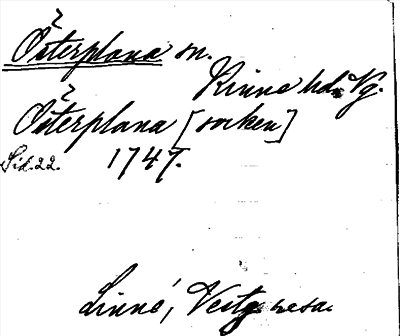 Österplana sn.
Kinne hd. Vg.
Österplana [socken]
Sid. 22. 1747.
Linné, Vestg. resa